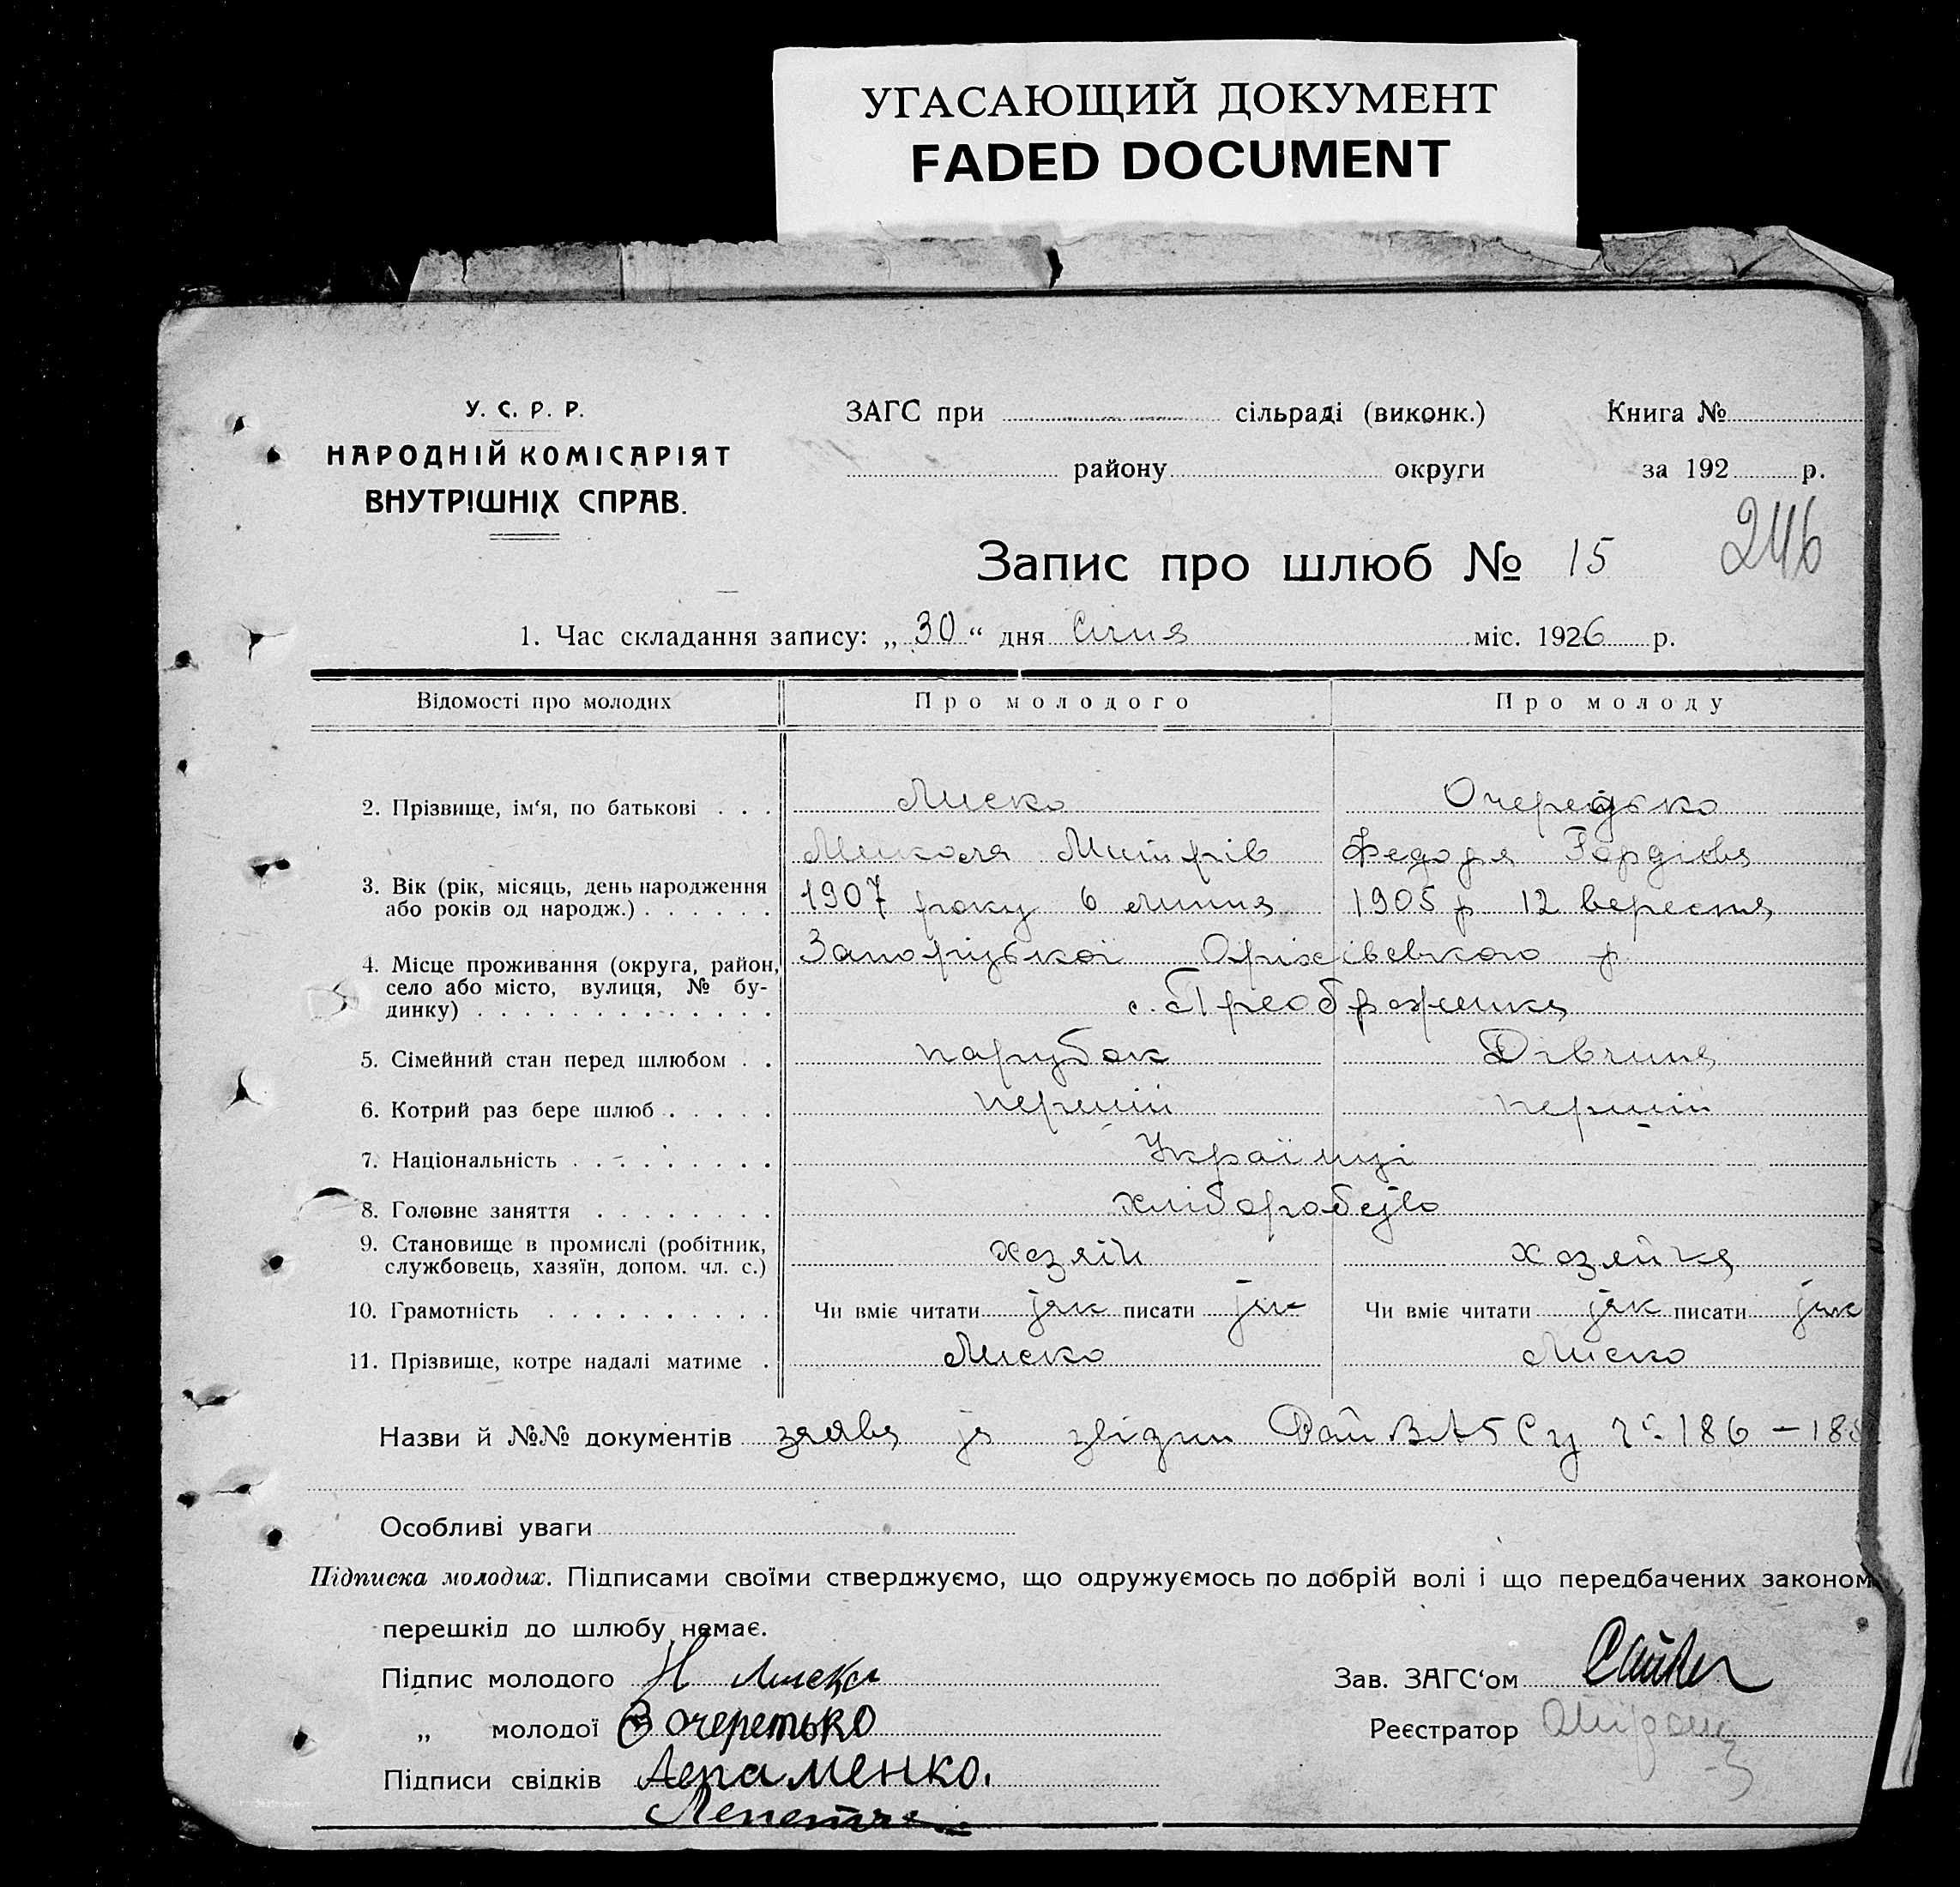 УГАСАЮЩИЙ ДОКУМЕНТ
FADED DOCUMENT
У. С. Р. Р.
НАРОДНІЙ КОМІСАРІЯТ
ВНУТРІШНІХ СПРАВ.
ЗАГС при сільраді (виконк.) Книга №
району округи за 192 р.
246
Запис про шлюб № 15
1. Час складання запису: „30“ дня Січня міс. 1926 р.
Відомості про молодих Про молодого Про молоду
2. Прізвище, ім‘я, по батькові . . . Лиско Очередько
Микола Митрів Федора Гордієва
3. Вік (рік, місяць, день народження або років од народж.) . . . . . . 1907 року 6 липня 1905 р 12 вересня
4. Місце проживання (округа, район, село або місто, вулиця, № будинку) . . . . . . . . . . . . . Запорізької Оріхівського р
с. Преображенка
5. Сімейний стан перед шлюбом . . парубок Дівчина
6. Котрий раз бере шлюб . . . . . перший перший
7. Національність . . . . . . . . . Українці
8. Головне заняття . . . . . . . . хліборобство
9. Становище в промислі (робітник, службовець, хазяїн, допом. чл. с.) хозяїн хозяйка
10. Грамотність . . . . . . . . . . Чи вміє читати так писати так Чи вміє читати так писати так
11. Прізвище, котре надалі матиме . Лиско Лиско
Назви й №№ документів заява та звідки Рай ЗАГСу 186 – 18
Особливі уваги
Підписка молодих. Підписами своїми стверджуємо, що одружуємось по добрій волі і що передбачених законом
перешкід до шлюбу немає.
Підпис молодого Н Лиско Зав. ЗАГС‘ом
„ молодої очеретько Реєстратор
Підписи свідків